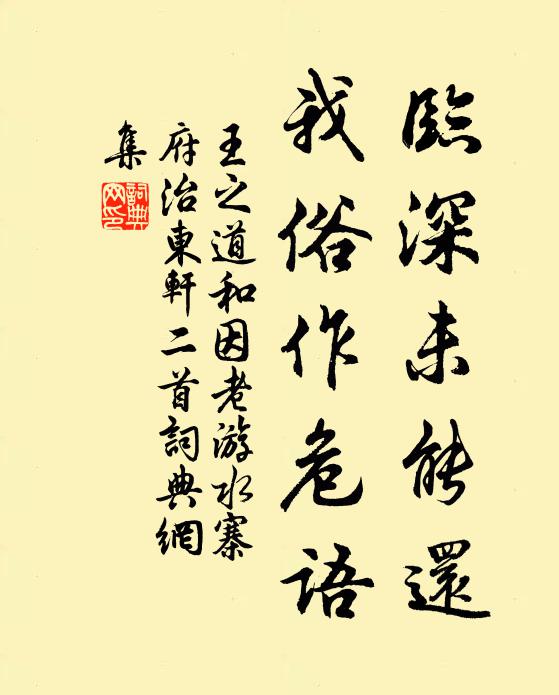 臨深未能還
我俗作危語
王之道和因老游水寨
府治東軒二首詞典網
集
詞典網印